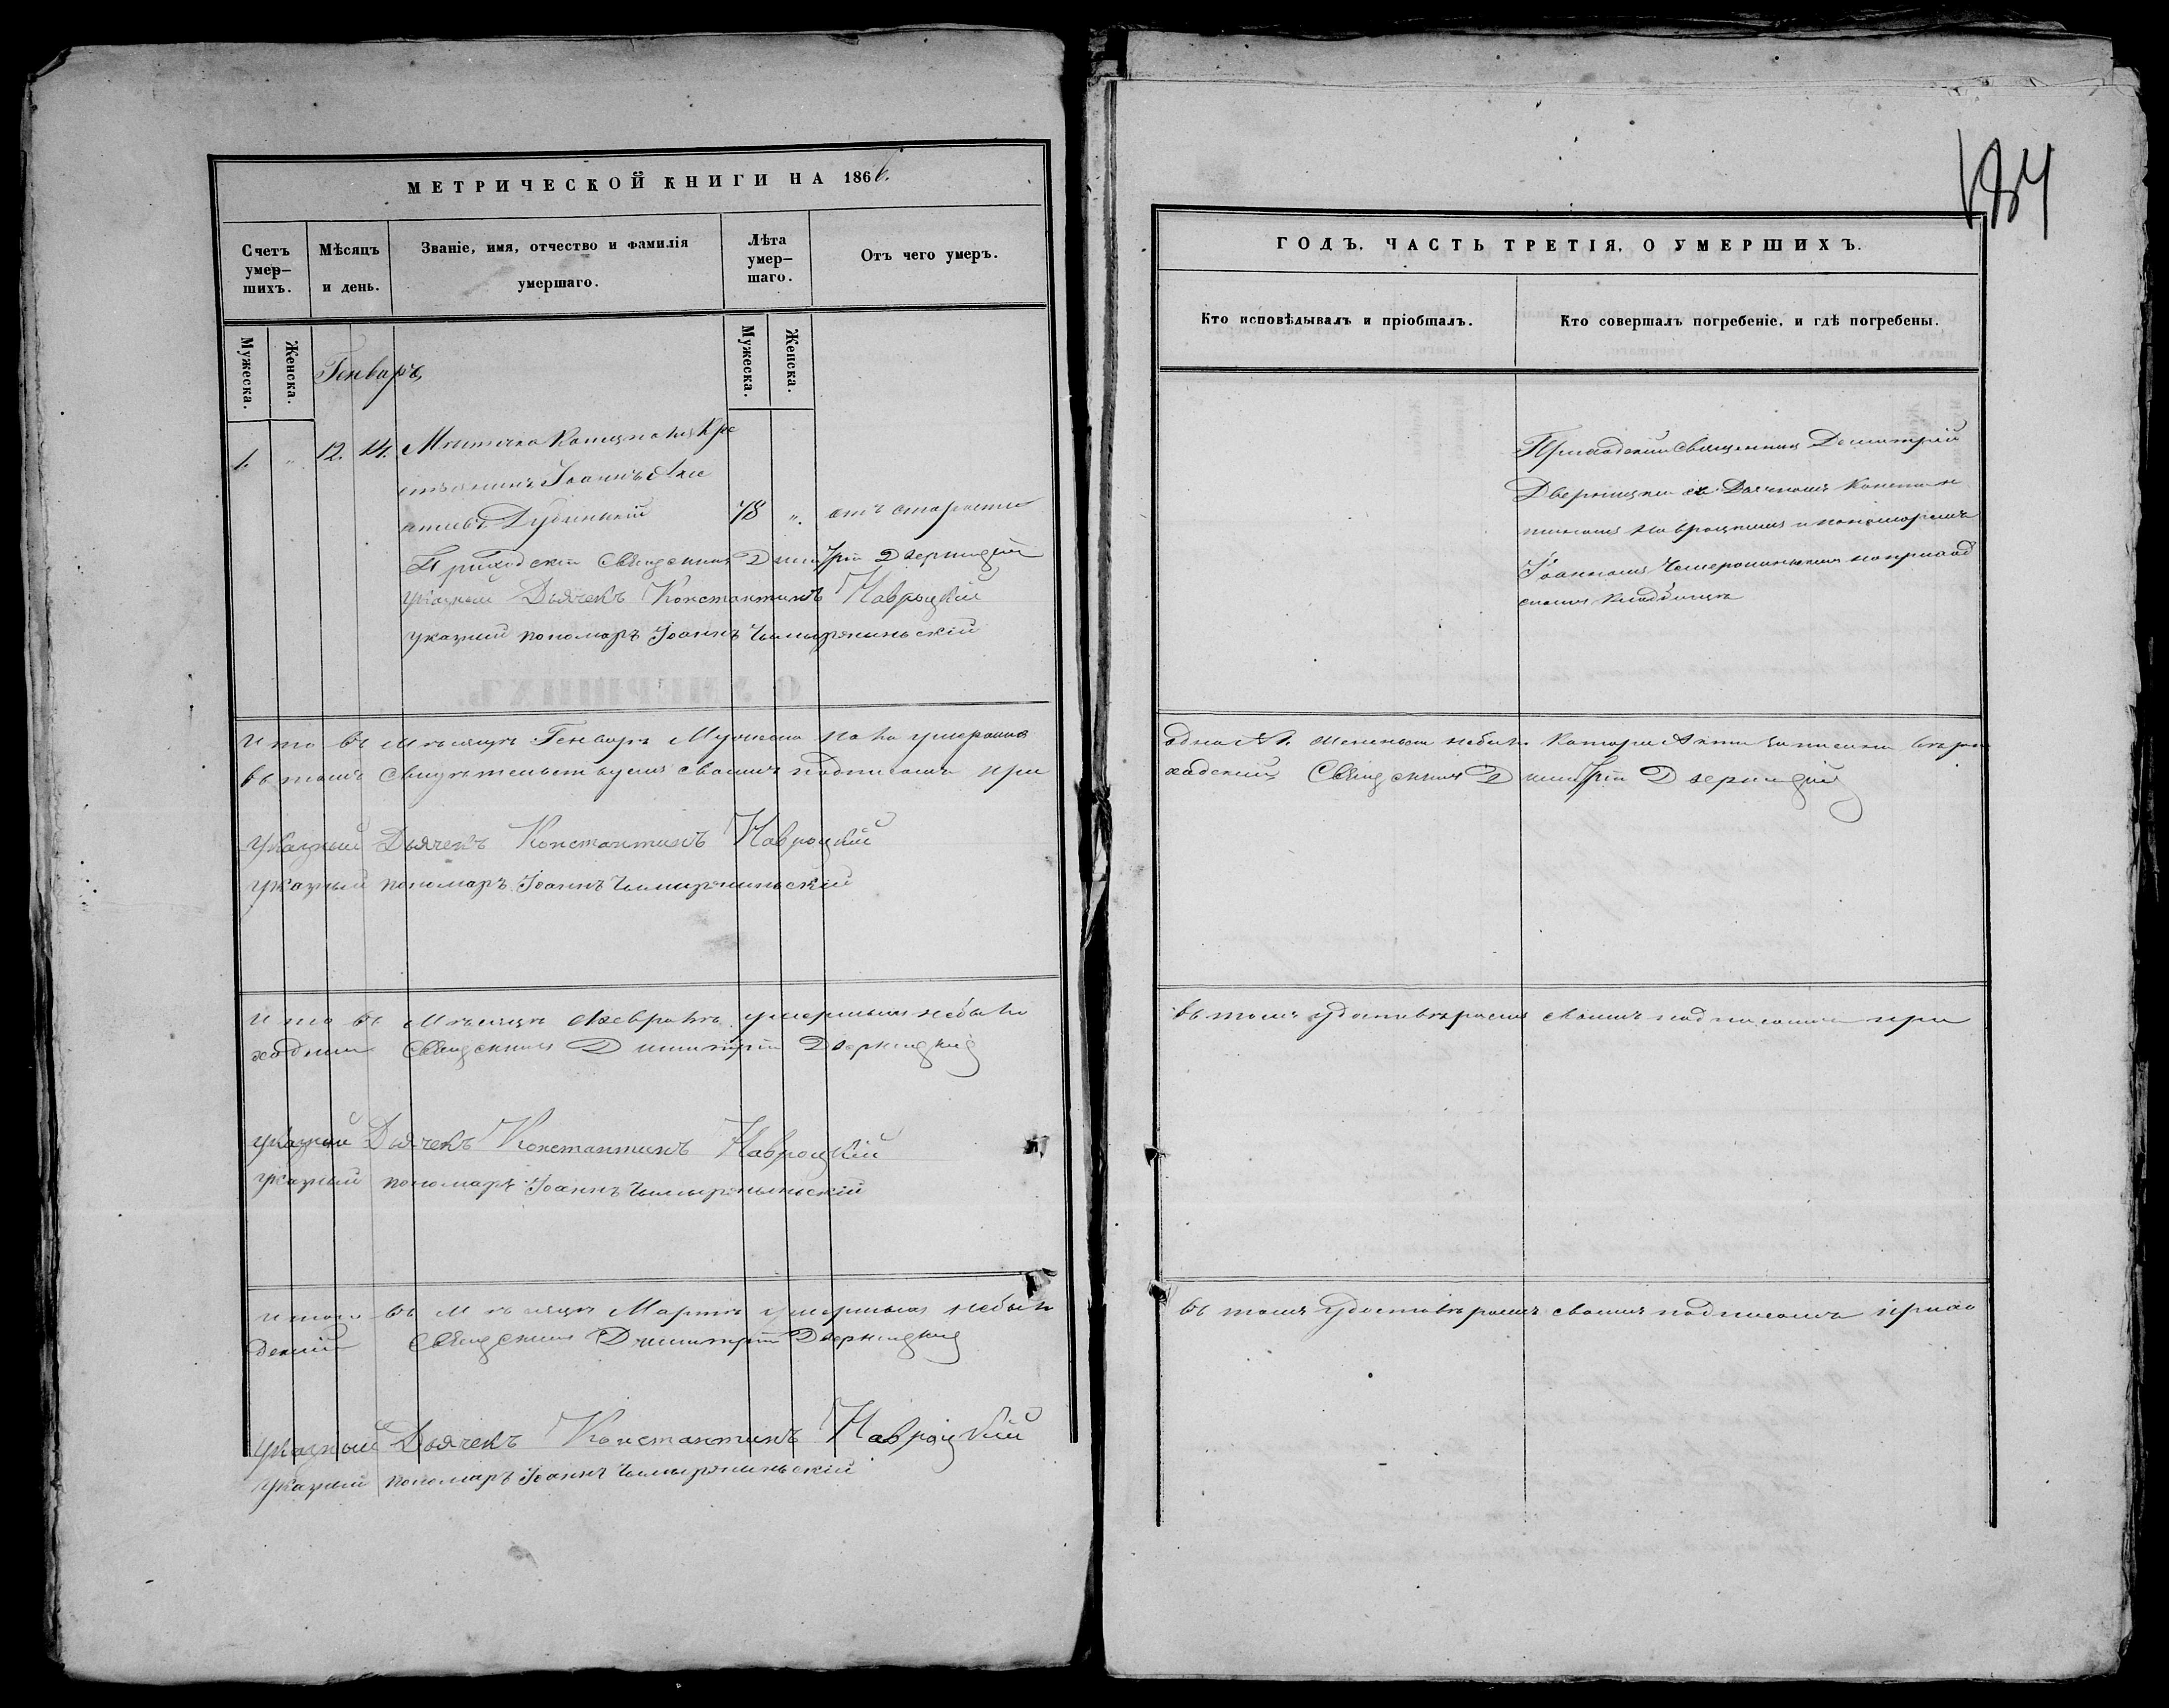 МЕТРИЧЕСКОЙ КНИГИ НА 1866.
Счетъ умер-
шихъ.
Мѣсяцъ
и день.
Званіе, имя, отчество и фамилія
умершаго.
Лѣта
умер-
шаго.
Отъ чего умеръ.
Мужеска.
Женска.
Генваръ
Мужеска.
Женска.
1. „ 12. 14. Мѣстечка
Іоаннъ
Дубицкій 78 „. отъ старости
Приходскій Священникъ Димитрій Дверницкій
Указный Дьячекъ Константинъ Навроцкій
указный пономаръ Іоаннъ
въ Мѣсяцѣ Генварѣ Мужеска пола умершихъ
въ томъ свидѣтельствуемъ своимъ подписомъ при
Указный Дьячекъ Константинъ Навроцкій
Указный пономаръ Іоаннъ
въ Мѣсяцѣ Февралѣ умершихъ небыло
Священникъ Димитрій Дверницкій
Указный Дьячекъ Константинъ Навроцкій
указный пономаръ Іоаннъ
итого въ Мѣсяцѣ Мартѣ умершихъ небыло
дскій Священникъ Димитрій Дверницкій
Указный Дьячекъ Константинъ Навроцкій
Указный пономаръ Іоаннъ
184
ГОДЪ, ЧАСТЬ ТРЕТІЯ, О УМЕРШИХЪ.
Кто исповѣдывалъ и пріобщалъ.
Кто совершалъ погребеніе, и гдѣ погребены.
Приходскій Священникъ Димитрій
Дверницкій съ Дьячкомъ Констан
тиномъ Навроцкимъ и пономаремъ
Іоанномъ на приход
скомъ кладбищѣ
одно №1. женьска небыло
ходскій Священникъ Димитрій Дверницкій
въ томъ удостовѣряемъ своимъ подписомъ при
въ томъ удостовѣряемъ своимъ подписомъ прихо